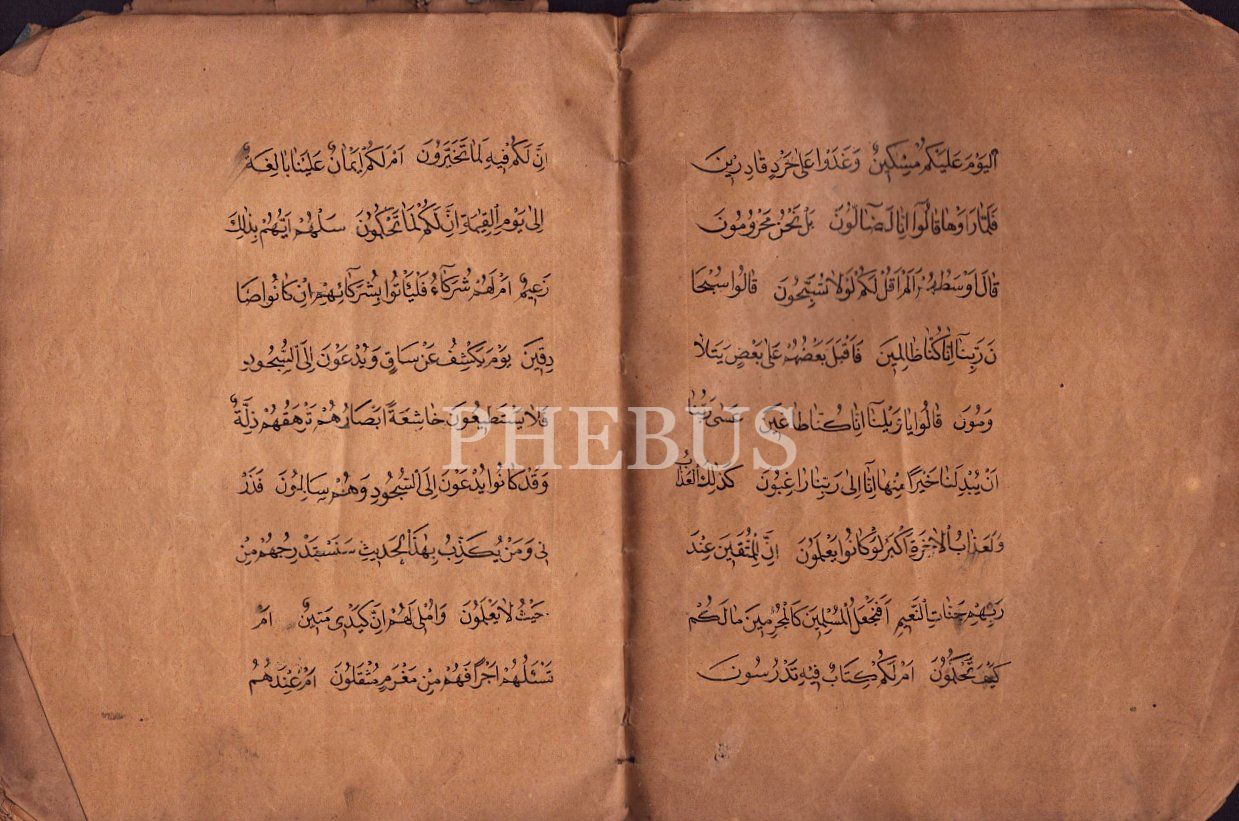 اَلْيَوْمَ عَلَيْكُمْ مِسْكِينٌ وَغَدَوْا عَلٰى حَرْدٍ قَادِرِينَ
فَلَمَّا رَاَوْهَا قَالُوٓا اِنَّا لَضَآلُّونَ بَلْ نَحْنُ مَحْرُومُونَ
قَالَ اَوْسَطُهُمْ اَلَمْ اَقُلْ لَكُمْ لَوْلَا تُسَبِّحُونَ قَالُوا سُبْحَا
نَ رَبِّنَٓا اِنَّا كُنَّا ظَالِمِينَ فَاَقْبَلَ بَعْضُهُمْ عَلٰى بَعْضٍ يَتَلَا
وَمُونَ قَالُوا يَا وَيْلَنَٓا اِنَّا كُنَّا طَاغِينَ عَسٰى رَبُّنَا
اَنْ يُبْدِلَنَا خَيْرًا مِنْهَا اِنَّٓا اِلٰى رَبِّنَا رَاغِبُونَ كَذٰلِكَ الْعَذَابُ
وَلَعَذَابُ الْاٰخِرَةِ اَكْبَرُ لَوْ كَانُوا يَعْلَمُونَ اِنَّ لِلْمُتَّقِينَ عِنْدَ
رَبِّهِمْ جَنَّاتِ النَّعِيمِ اَفَنَجْعَلُ الْمُسْلِمِينَ كَالْمُجْرِمِينَ مَا لَكُمْ
كَيْفَ تَحْكُمُونَ اَمْ لَكُمْ كِتَابٌ فِيهِ تَدْرُسُونَ
اِنَّ لَكُمْ فِيهِ لَمَا تَخَيَّرُونَ اَمْ لَكُمْ اَيْمَانٌ عَلَيْنَا بَالِغَةٌ
اِلٰى يَوْمِ الْقِيٰمَةِ اِنَّ لَكُمْ لَمَا تَحْكُمُونَ سَلْهُمْ اَيُّهُمْ بِذٰلِكَ
زَعِيمٌ اَمْ لَهُمْ شُرَكَٓاءُ فَلْيَأْتُوا بِشُرَكَٓائِهِمْ اِنْ كَانُوا صَا
دِقِينَ يَوْمَ يُكْشَفُ عَنْ سَاقٍ وَيُدْعَوْنَ اِلَى السُّجُودِ
فَلَا يَسْتَطِيعُونَ خَاشِعَةً اَبْصَارُهُمْ تَرْهَقُهُمْ ذِلَّةٌ
وَقَدْ كَانُوا يُدْعَوْنَ اِلَى السُّجُودِ وَهُمْ سَالِمُونَ فَذَرْ
نِي وَمَنْ يُكَذِّبُ بِهٰذَا الْحَدِيثِ سَنَسْتَدْرِجُهُمْ مِنْ
حَيْثُ لَا يَعْلَمُونَ وَاُمْلِي لَهُمْ اِنَّ كَيْدِي مَتِينٌ اَمْ
تَسْـَٔلُهُمْ اَجْرًا فَهُمْ مِنْ مَغْرَمٍ مُثْقَلُونَ اَمْ عِنْدَهُمُ
PHEBUS